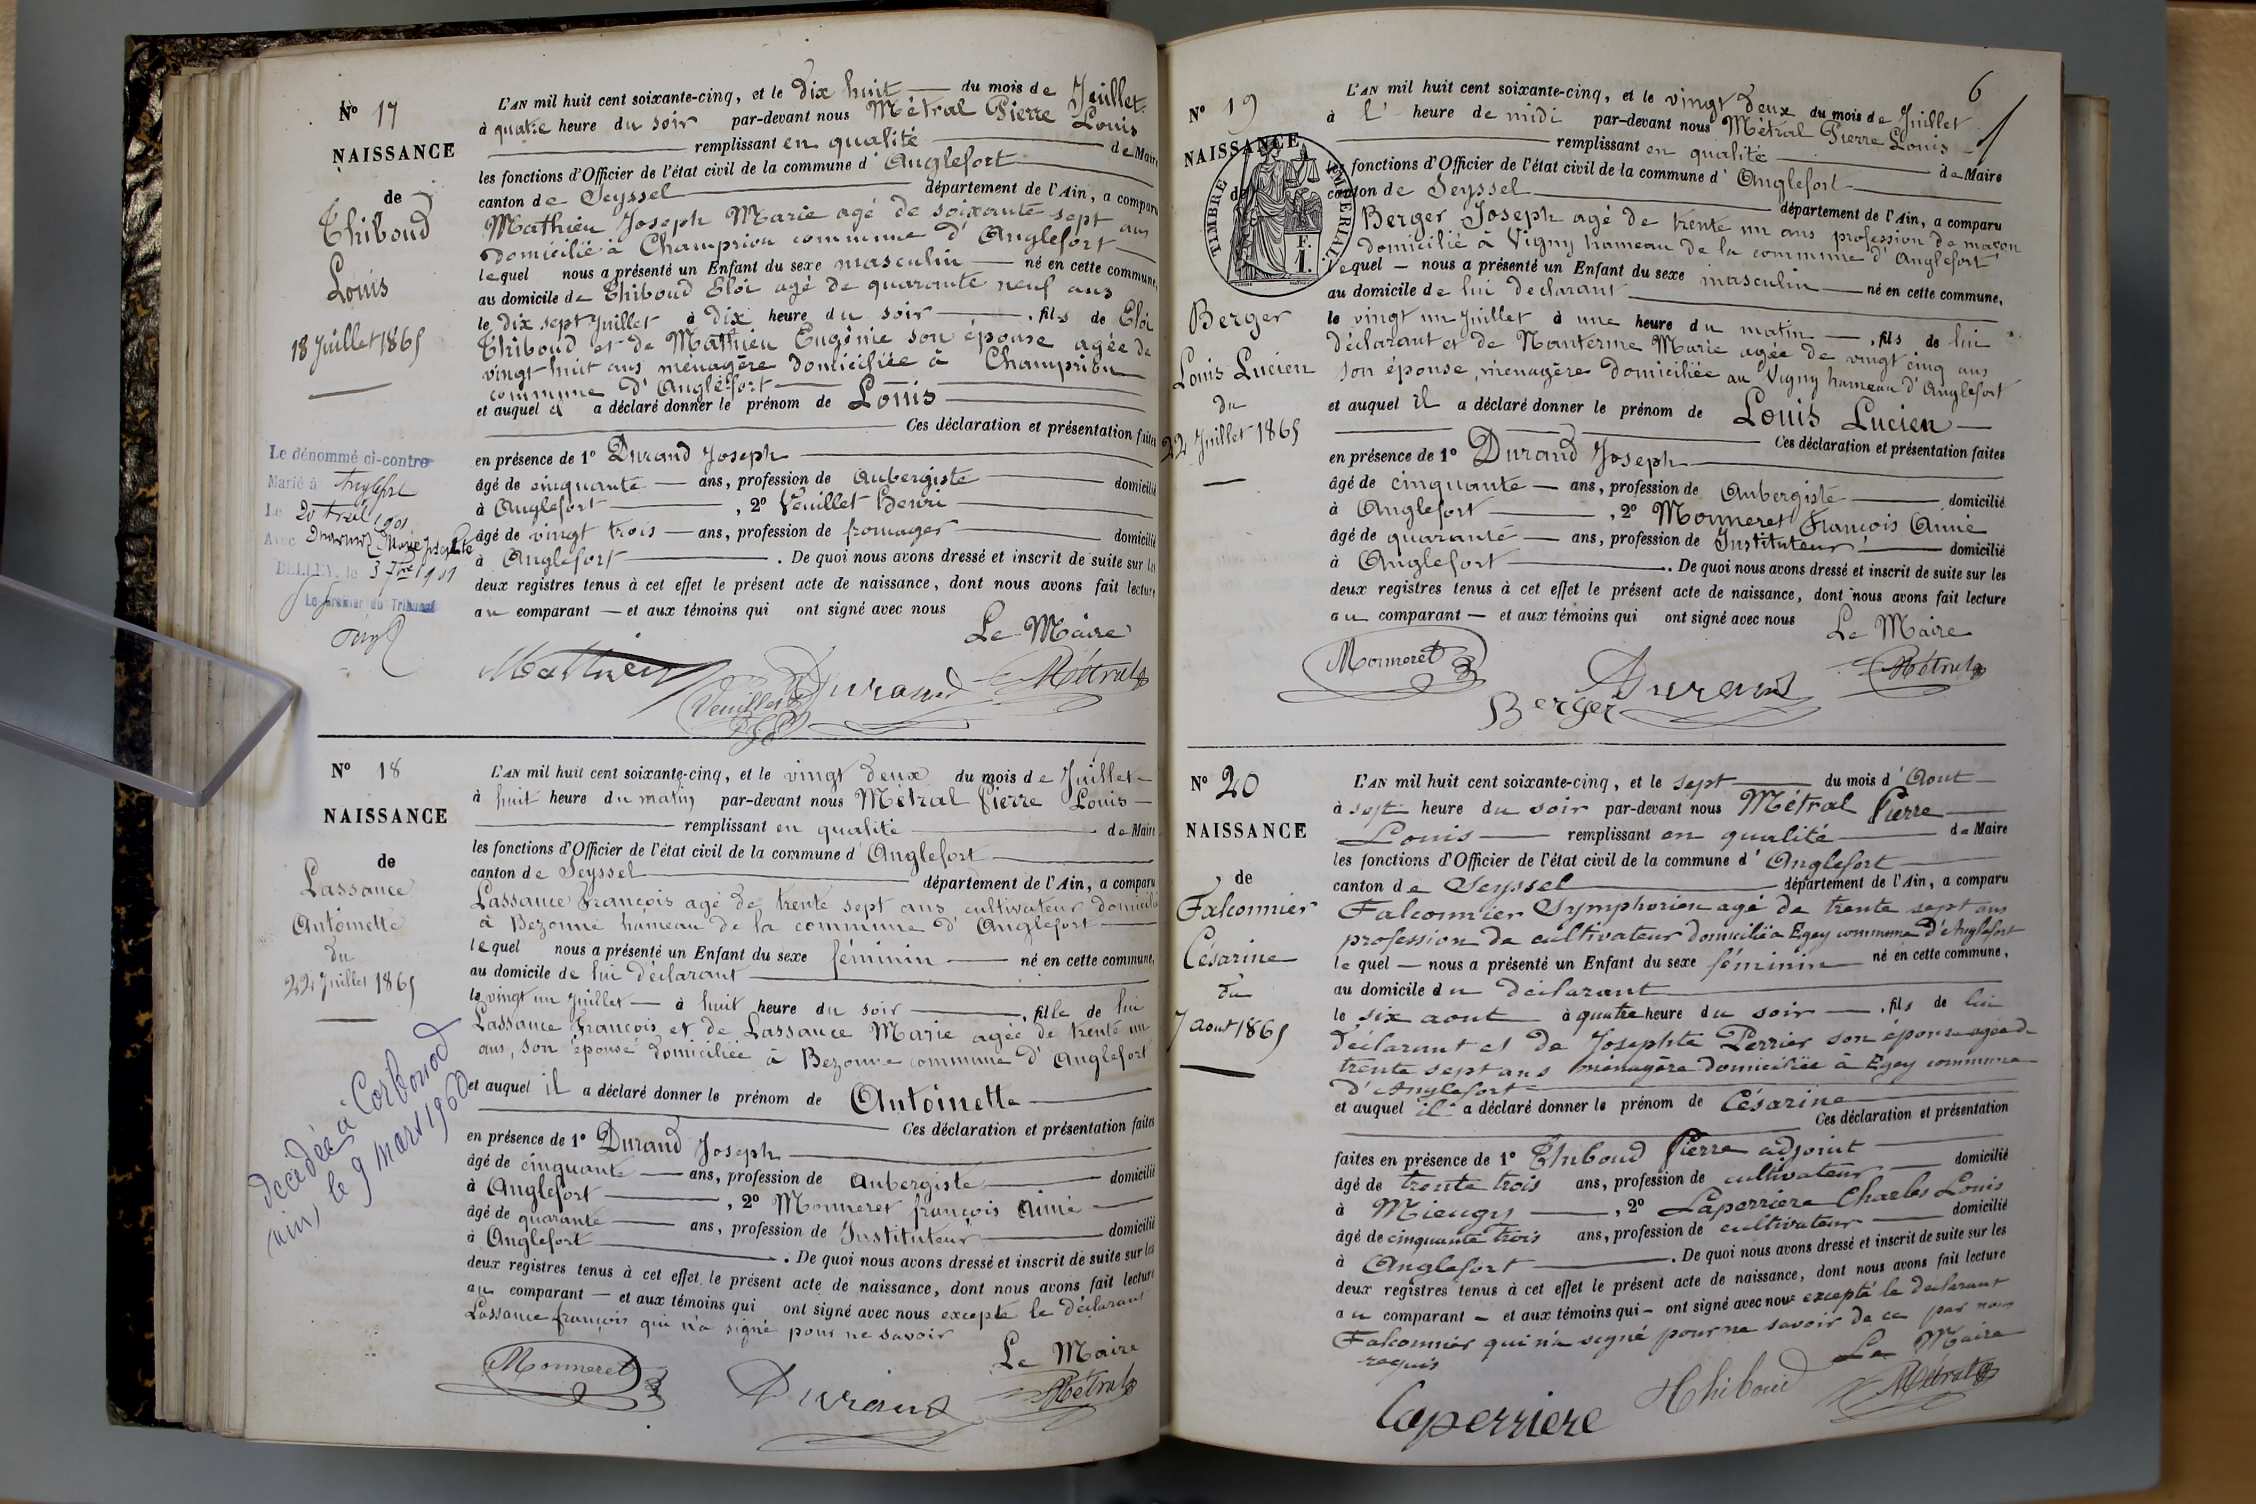 N° 17
NAISSANCE
de
Thiboud
Louis
18 Juillet 1865
Le dénommé ci-contre
Marié à Anglefort
Le 20 Avril 1901
Avec Marie Josephte
BELLEY, le 3 7bre 1901
Le Greffier du Tribunal
L'AN mil huit cent soixante-cinq, et le dix huit du mois de Juillet
à quatre heure du soir par-devant nous Métral Pierre Louis
remplissant en qualité de Maire
les fonctions d'Officier de l'état civil de la commune d'Anglefort
canton de Seyssel département de l'Ain, a comparu
Mathieu Joseph Marie agé de soixante sept ans
domicilié à Champrion commune d'Anglefort
lequel nous a présenté un Enfant du sexe masculin né en cette commune,
au domicile de Thiboud Eloi agé de quarante neuf ans
le dix sept Juillet à dix heure du soir, fils de Eloi
Thiboud et de Mathieu Eugénie son épouse agée de
vingt huit ans ménagère domiciliée à Champrion
commune d'Anglefort
et auquel il a déclaré donner le prénom de Louis
Ces déclaration et présentation faites
en présence de 1° Durand Joseph
âgé de cinquante ans, profession de Aubergiste domicilié
à Anglefort, 2° Veuillet Henri
âgé de vingt trois ans, profession de fromager domicilié
à Anglefort. De quoi nous avons dressé et inscrit de suite sur les
deux registres tenus à cet effet le présent acte de naissance, dont nous avons fait lecture
au comparant et aux témoins qui ont signé avec nous
Le Maire
Mathieu Veuillet Durand Métral
N° 18
NAISSANCE
de
Lassance
Antoinette
du
22 Juillet 1865
décédée à Corbonod
(Ain) le 9 mars 1960
L'AN mil huit cent soixante-cinq, et le vingt deux du mois de Juillet
à huit heure du matin par-devant nous Métral Pierre Louis
remplissant en qualité de Maire
les fonctions d'Officier de l'état civil de la commune d'Anglefort
canton de Seyssel département de l'Ain, a comparu
Lassance François agé de trente sept ans cultivateur domicilié
à Bezonne hameau de la commune d'Anglefort
lequel nous a présenté un Enfant du sexe féminin né en cette commune,
au domicile de lui déclarant
le vingt un Juillet à huit heure du soir, fille de lui
Lassance François et de Lassance Marie agée de trente un
ans, son épouse domiciliée à Bezonne commune d'Anglefort
et auquel il a déclaré donner le prénom de Antoinette
Ces déclaration et présentation faites
en présence de 1° Durand Joseph
âgé de cinquante ans, profession de Aubergiste domicilié
à Anglefort, 2° Monneret françois Aimé
âgé de quarante ans, profession de Instituteur domicilié
à Anglefort. De quoi nous avons dressé et inscrit de suite sur les
deux registres tenus à cet effet le présent acte de naissance, dont nous avons fait lecture
au comparant et aux témoins qui ont signé avec nous excepté le déclarant
Lassance françois qui n'a signé pour ne savoir
Le Maire
Monneret Durand Métral
6
N° 19
NAISSANCE
de
TIMBRE IMPERIAL
F.
1.
Berger
Louis Lucien
du
22 Juillet 1865
L'AN mil huit cent soixante-cinq, et le vingt deux du mois de Juillet
à l' heure de midi par-devant nous Métral Pierre Louis
remplissant en qualité de Maire
les fonctions d'Officier de l'état civil de la commune d'Anglefort
canton de Seyssel département de l'Ain, a comparu
Berger Joseph agé de trente un ans profession de maçon
domicilié à Vigny hameau de la commune d'Anglefort
lequel nous a présenté un Enfant du sexe masculin né en cette commune,
au domicile de lui declarant
le vingt un Juillet à une heure du matin, fils de lui
déclarant et de Nanterme Marie agée de vingt cinq ans
son épouse, ménagère domiciliée au Vigny hameau d'Anglefort
et auquel il a déclaré donner le prénom de Louis Lucien
Ces déclaration et présentation faites
en présence de 1° Durand Joseph
âgé de cinquante ans, profession de Aubergiste domicilié
à Anglefort, 2° Monneret François Aimé
âgé de quarante ans, profession de Instituteur domicilié
à Anglefort. De quoi nous avons dressé et inscrit de suite sur les
deux registres tenus à cet effet le présent acte de naissance, dont nous avons fait lecture
au comparant et aux témoins qui ont signé avec nous
Le Maire
Monneret Berger Durand Métral
N° 20
NAISSANCE
de
Falconnier
Césarine
du
7 aout 1865
L'AN mil huit cent soixante-cinq, et le sept du mois d'Aout
à sept heure du soir par-devant nous Métral Pierre
Louis remplissant en qualité de Maire
les fonctions d'Officier de l'état civil de la commune d'Anglefort
canton de Seyssel département de l'Ain, a comparu
Falconnier Symphorien agé de trente sept ans
profession de cultivateur domicilié a Egey commune d'Anglefort
lequel nous a présenté un Enfant du sexe féminin né en cette commune,
au domicile du déclarant
le six aout à quatre heure du soir, fils de lui
déclarant et de Josephte Perrier son épouse agée de
trente sept ans ménagère domiciliée à Egey commune
d'Anglefort
et auquel il a déclaré donner le prénom de Césarine
Ces déclaration et présentation
faites en présence de 1° Thiboud Pierre adjoint
âgé de trente trois ans, profession de cultivateur domicilié
à Mieugy, 2° Laperriere Charles Louis
âgé de cinquante trois ans, profession de cultivateur domicilié
à Anglefort. De quoi nous avons dressé et inscrit de suite sur les
deux registres tenus à cet effet le présent acte de naissance, dont nous avons fait lecture
au comparant et aux témoins qui ont signé avec nous excepté le declarant
Falconnier qui n'a signé pour ne savoir de ce par nous
requis
Le Maire
Laperriere Thiboud Métral